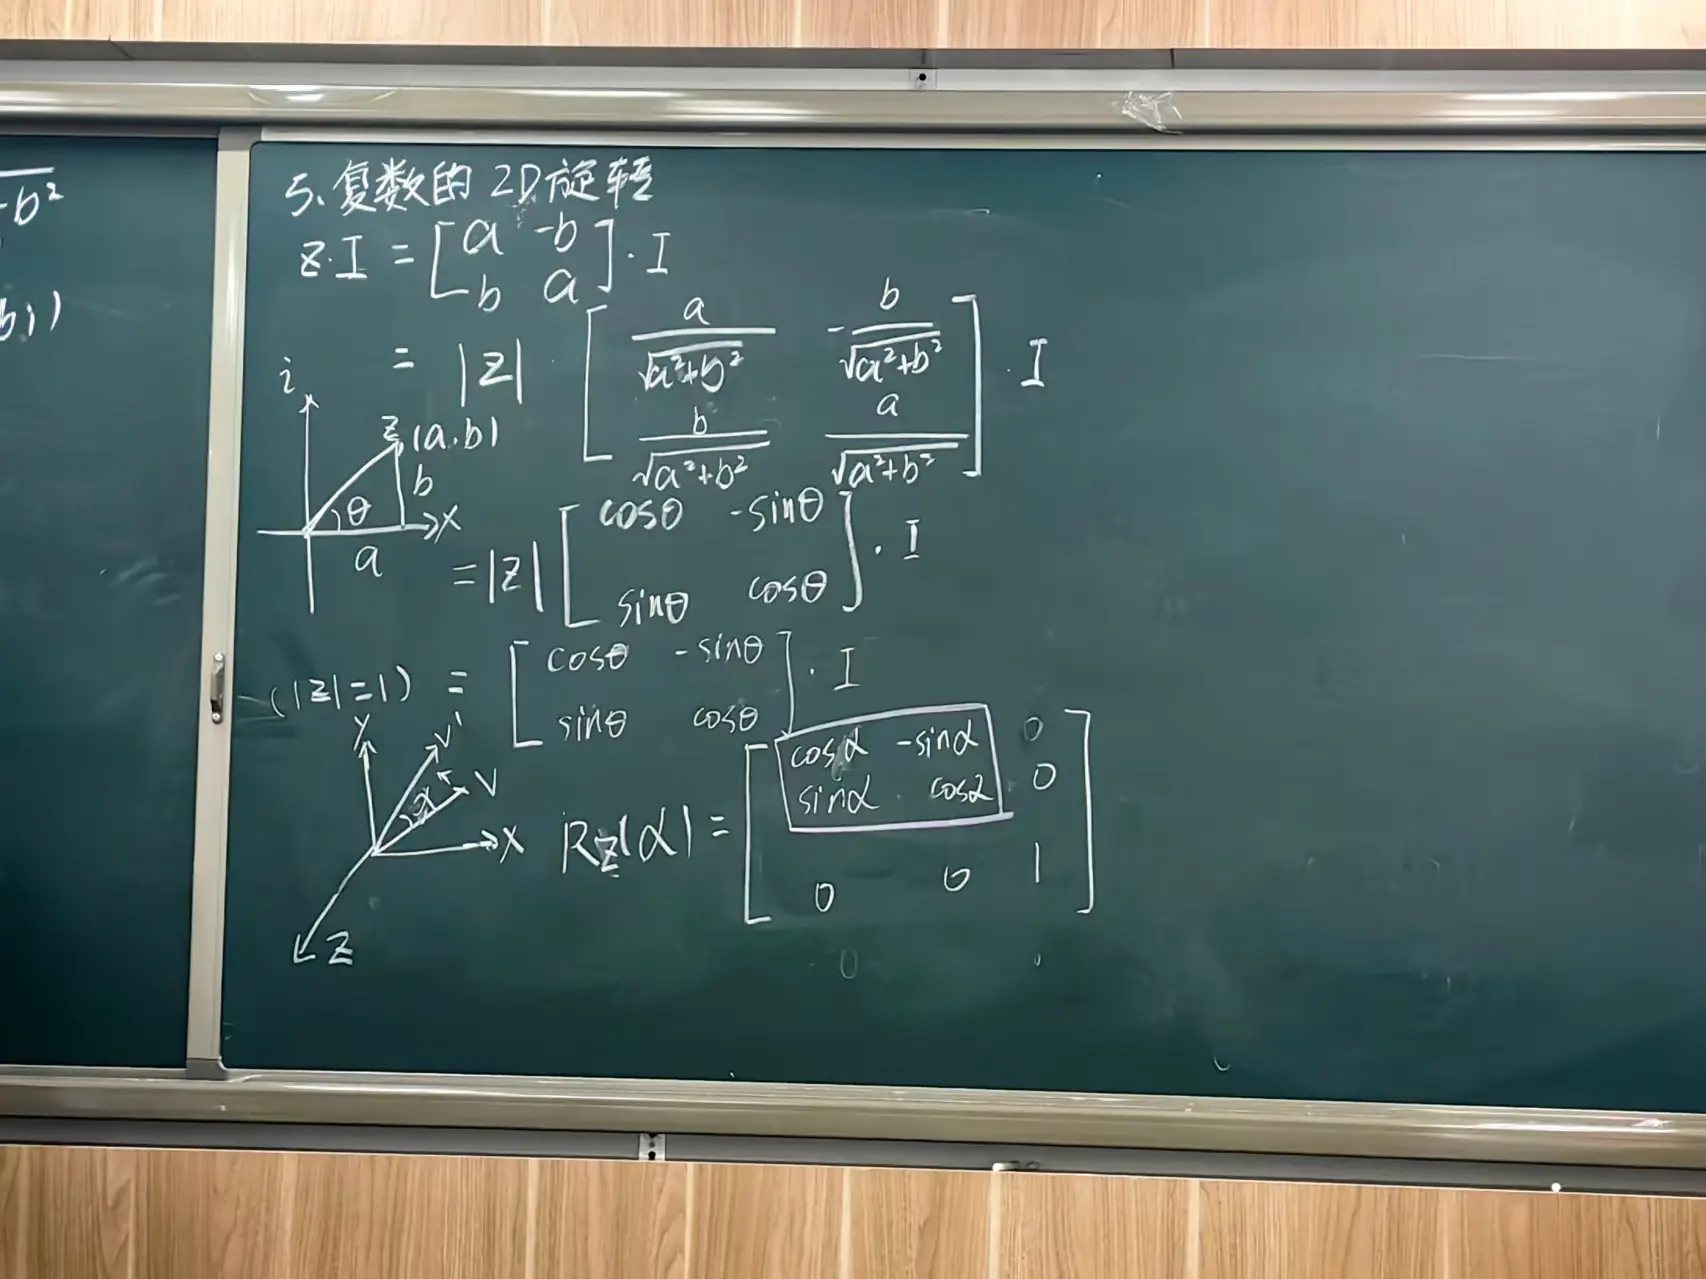 -b²
bi)
5、复数的 2D 旋转
z·I = [a -b; b a]·I
= |z|·[a/√(a²+b²) -b/√(a²+b²); b/√(a²+b²) a/√(a²+b²)]·I
i
z(a.b)
b
θ
x
a
= |z| [cosθ -sinθ; sinθ cosθ]·I
(|z|=1) = [cosθ -sinθ; sinθ cosθ]·I
Y
V'
V
α
X
Z
Rz(α) = [cosα -sinα 0; sinα cosα 0; 0 0 1]